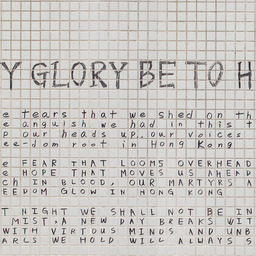 Y GLORY BE TO H
e tears that we shed on th
e anguish we had in this t
p our heads up, our voices
ee-dom root in Hong Kong
e FEAR THAT LOOMS OVERHEAD
e HOPE THAT MOVES US AHEAD
ch IN BLOOD, OUR MARTYRS A
EEDOM GLOW IN HONG KONG
T NIGHT WE SHALL NOT BE IN
MIST, A NEW DAY BREAKS WIT
WITH VIRTOUS MINDS AND UNB
ARLS WE HOLD WILL ALWAYS S